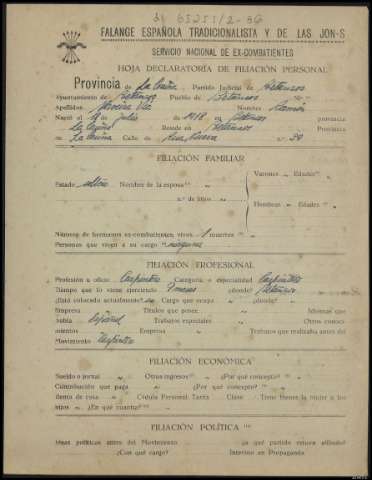 FALANGE ESPAÑOLA TRADICIONALISTA Y DE LAS JON-S
SERVICIO NACIONAL DE EX-COMBATIENTES
HOJA DECLARATORIA DE FILIACIÓN PERSONAL
Provincia de La Coruña Partido Judicial de Betanzos
Ayuntamiento de Betanzos Pueblo de Betanzos
Apellidos Nombre Ramón
Nació el de Julio de 1918 en Betanzos Provincia
La Coruña Reside en Betanzos Provincia
La Coruña Calle de Rua Nueva n.º 30
FILIACIÓN FAMILIAR
Estado soltero Nombre de la esposa " " Varones " Edades "
n.º de hijos " "
Hembras " Edades "
Número de hermanos ex-combatientes vivos 1 muertos "
Personas que viven a su cargo ninguna
FILIACIÓN PROFESIONAL
Profesión u oficio Carpintero Categoría o especialidad Carpintero
Tiempo que lo viene ejerciendo ¿dónde? Betanzos
¿Está colocado actualmente? no Cargo que ocupa " ¿dónde? "
Empresa Títulos que posee " Idiomas que
habla Español Trabajos especiales " Otros conoci-
mientos " Empresa " Trabajos que realizaba antes del
Movimiento Carpintero
FILIACIÓN ECONÓMICA
Sueldo o jornal " Otros ingresos " ¿Por qué concepto? "
Contribución que paga " ¿Por qué concepto? "
Renta de casa " Cédula Personal Tarifa Clase Tiene bienes la mujer o los
hijos " ¿En qué cuantía? "
FILIACIÓN POLÍTICA
Ideas políticas antes del Movimiento " ¿a qué partido estuvo afiliado?
¿Con qué cargo? Intervino en Propaganda